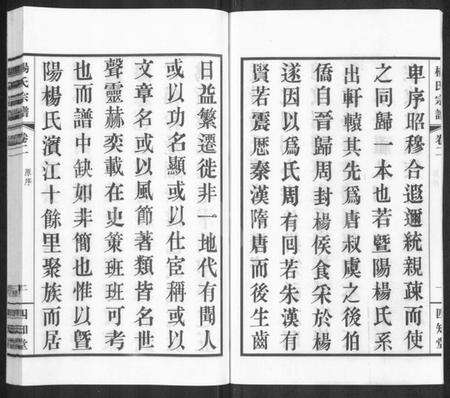 卑序昭穆合遐邇統親疎而使
之同歸一本也若暨陽楊氏系
出軒轅其先爲唐叔虞之後伯
僑自晉歸周封楊侯食采於楊
遂因以爲氏周有回若朱漢有
賢若震歷秦漢隋唐而後生齒
日益繁遷徙非一地代有聞人
或以功名顯或以仕宦稱或以
文章名或以風節著類皆名世
聲靈赫奕載在史策班班可考
也而譜中缺如非簡也惟以曁
陽楊氏濱江十餘里聚族而居
楊氏宗譜
卷二
原序
四知堂
楊氏宗譜
卷二
四知堂